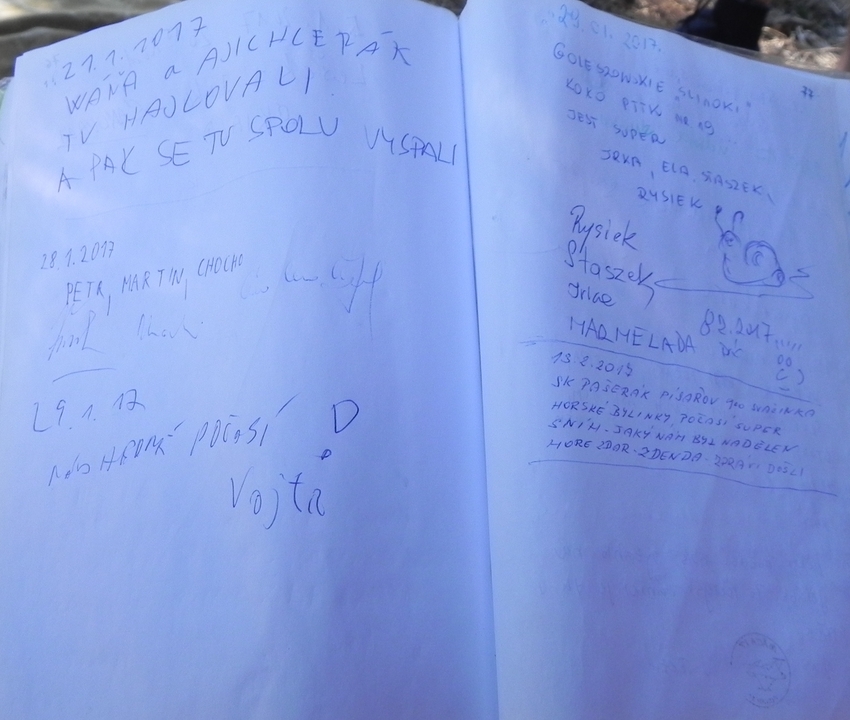 21.1.2017
WÁŇA a AJICHLERÁK
TU HAJLOVALI
A PAK SE TU SPOLU VYSPALI
28.1.2017
PETR, MARTIN, CHOCHO
29.1.17
POČASÍ
Vojta
29.01.2017.
77
GOLESZOWSKIE "ŚLIMOKI"
KOŁO PTTK nr 19
JEST SUPER
IRKA, ELA, STASZEK,
RYSIEK
Rysiek
Staszek
Irka
MARMELADA
8.2.2017
13.2.2017
SK PAŠERÁK PÍSAŘOV
HORSKÉ BYLINKY, POČASÍ SUPER
SNÍH - JAKÝ NÁM BYL NADĚLEN
HOŘE ZDAR - ZDENDA - ZDRÁVI DOŠLI